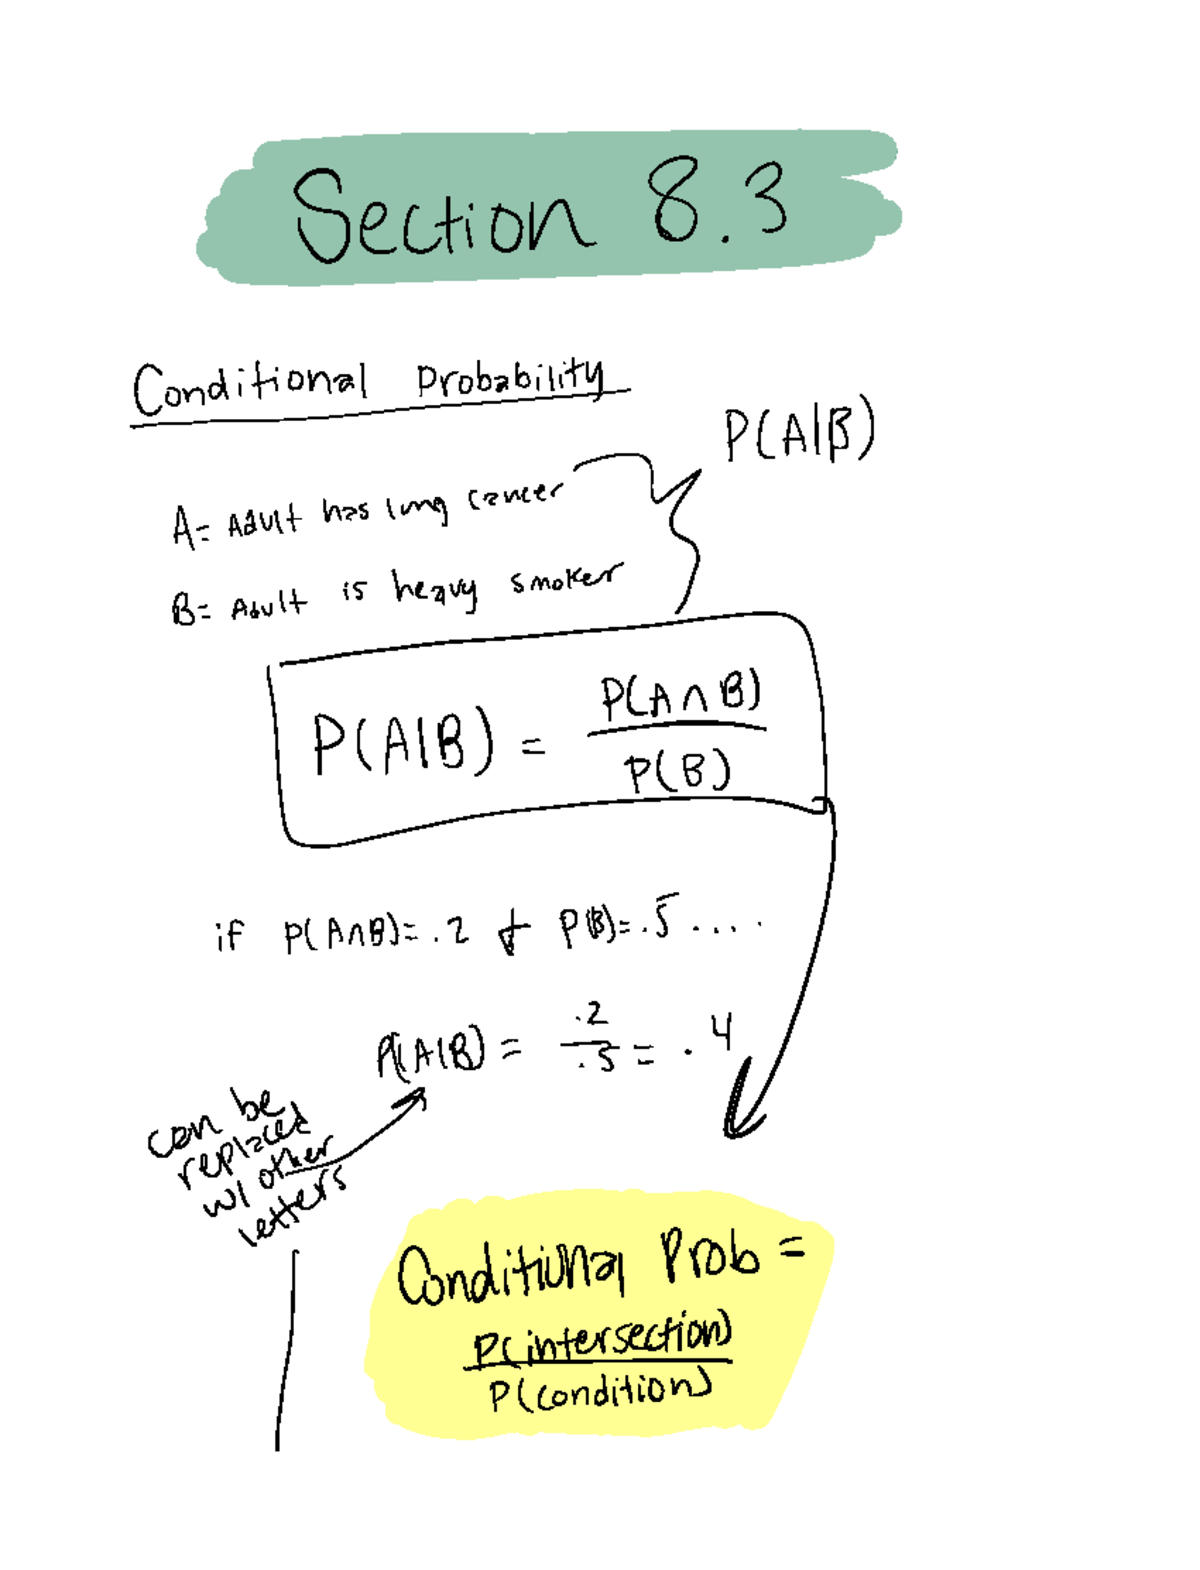 Section 8.3
Conditional Probability
P(A|B)
A= Adult has lung cancer
B= Adult is heavy smoker
P(A|B) = P(A∩B)
P(B)
if P(A∩B)= .2 & P(B)= .5 ....
P(A|B) = .2/.5 = .4
can be
replaced
w/ other
letters
Conditional Prob =
P(intersection)
P(condition)